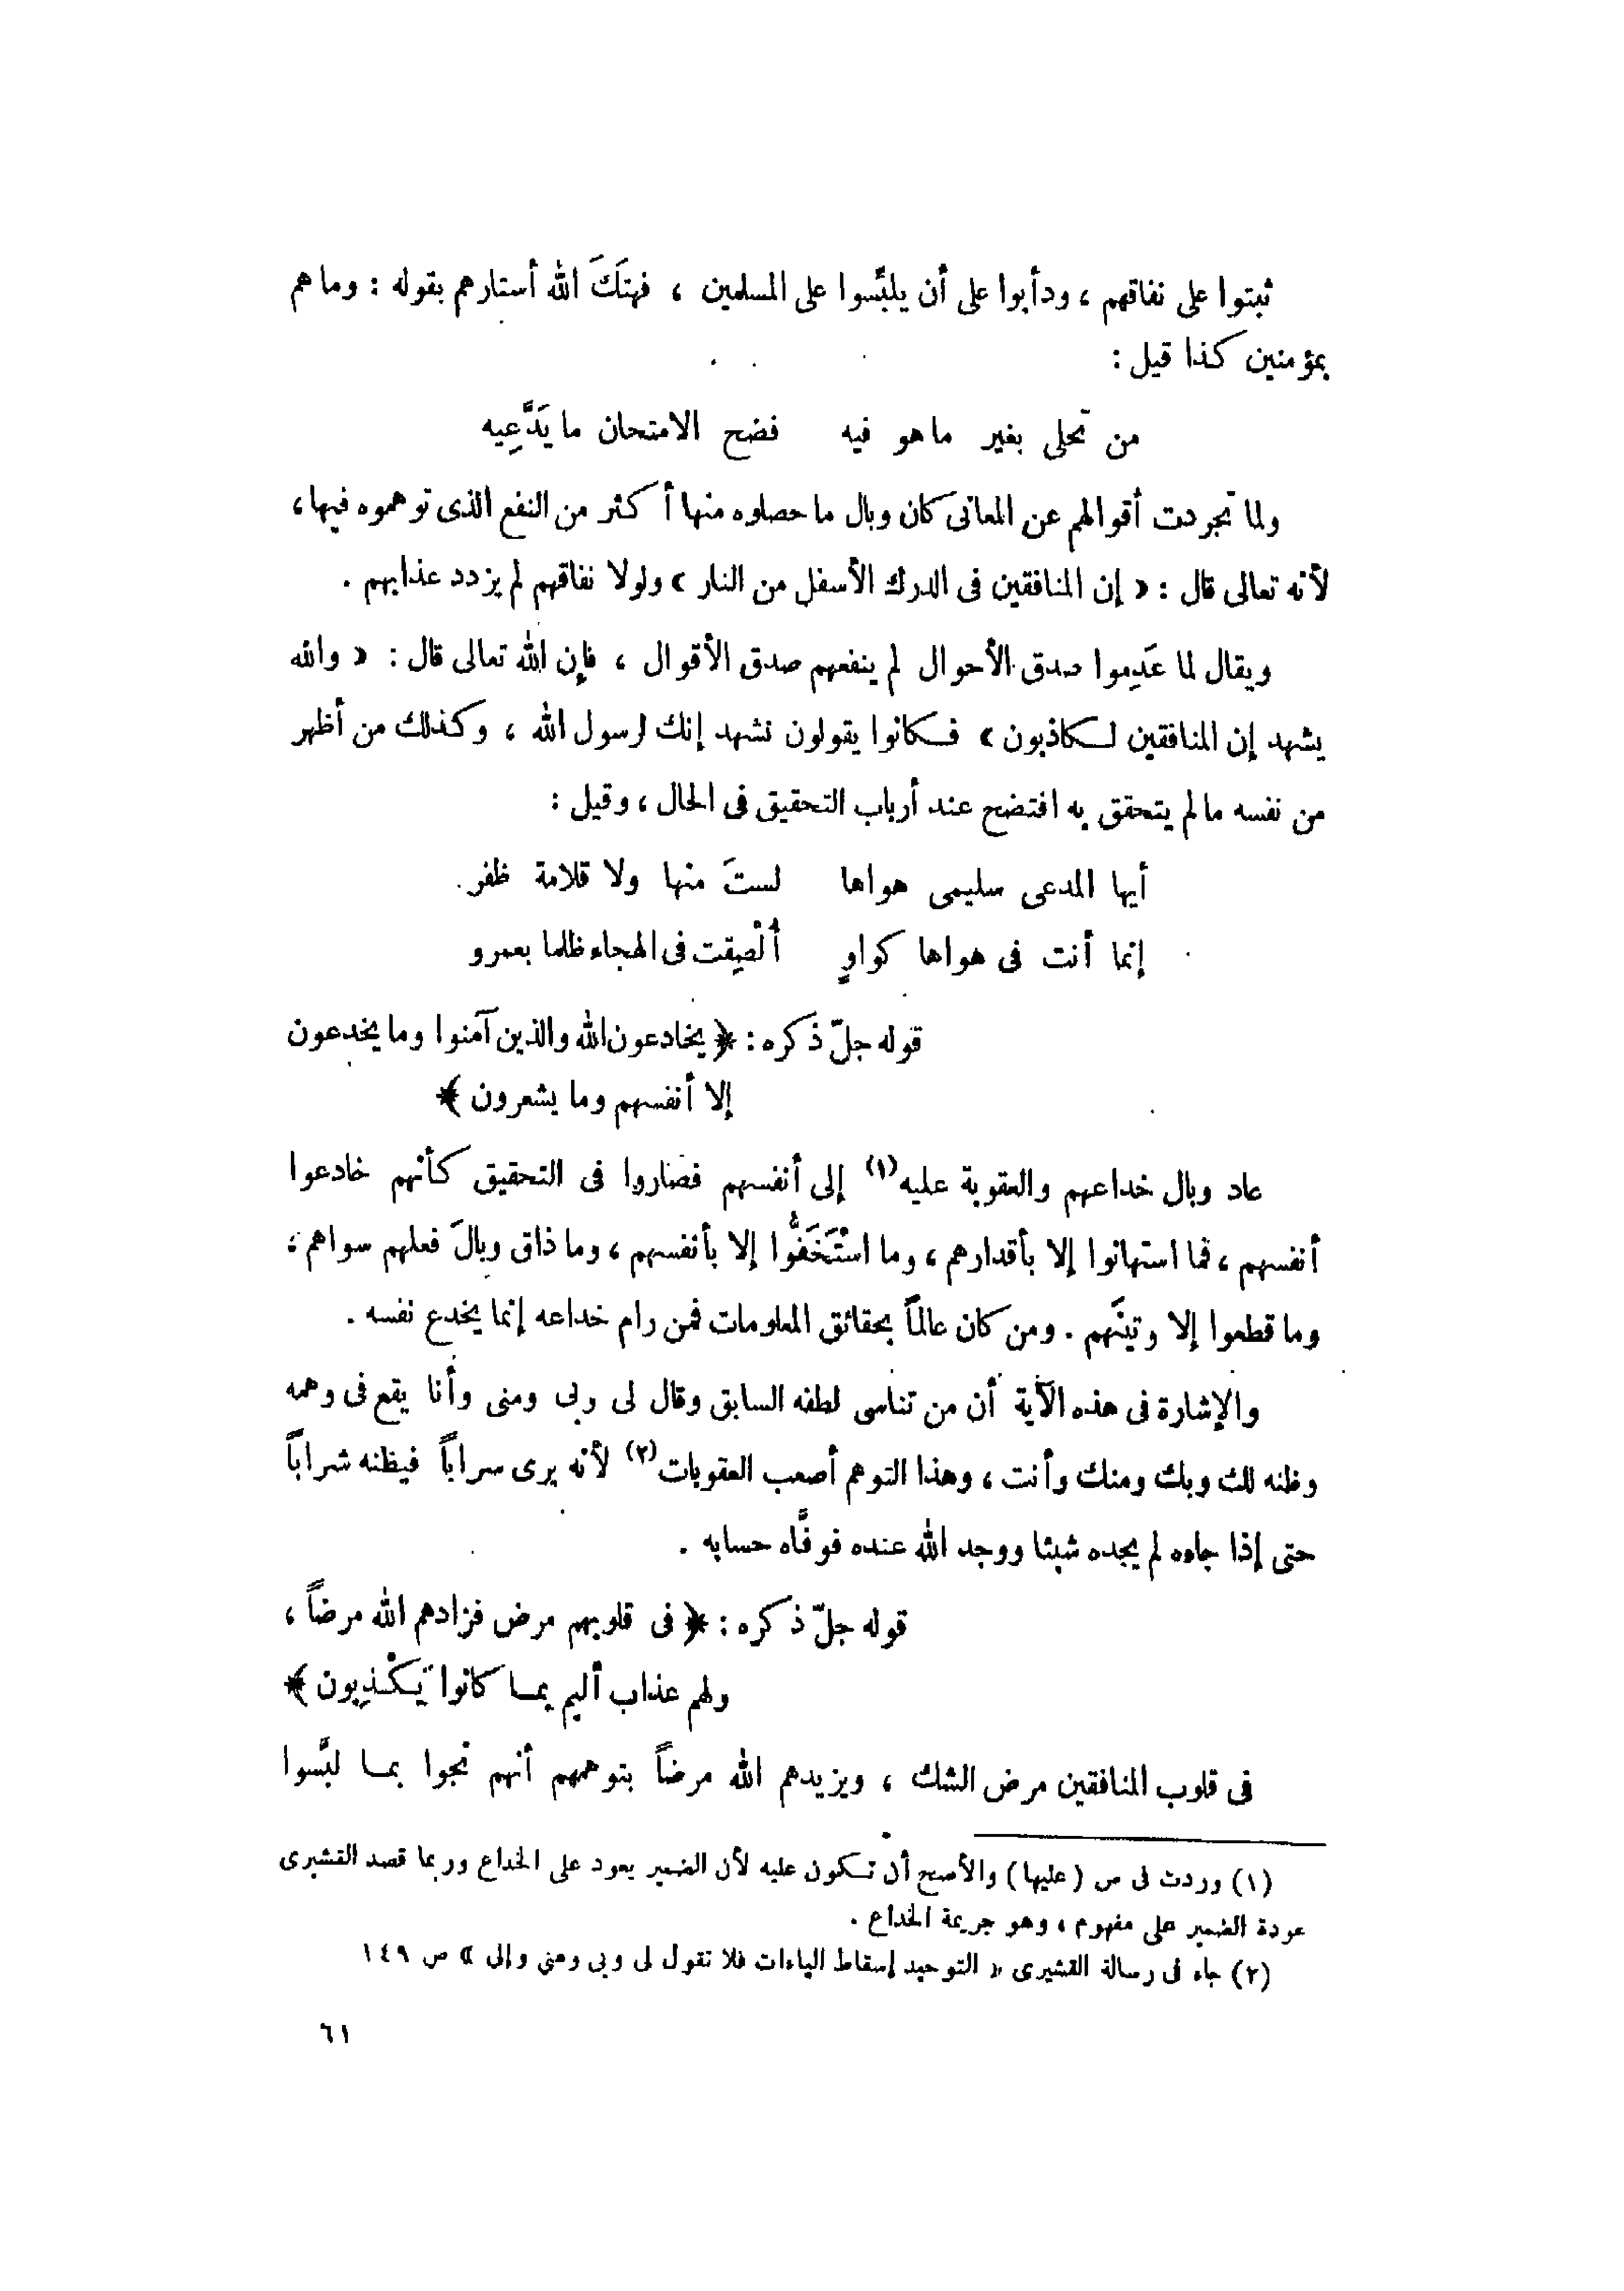 ثبتوا على نفاقهم ، ودأبوا على أن يلبِّسوا على المسلمين ، فهتَكَ الله أستارهم بقوله : وما هم
بمؤمنين كذا قيل :
من تحلى بغير ما هو فيه فضح الامتحان ما يَدَّعِيه
ولما تجردت أقوالهم عن المعانى كان وبال ما حصلوه منها أكثر من النفع الذى توهموه فيها ،
لأنه تعالى قال : « إن المنافقين فى الدرك الأسفل من النار » ولولا نفاقهم لم يزدد عذابهم .
ويقال لما عَدِموا صدق الأحوال لم ينفعهم صدق الأقوال ، فإن الله تعالى قال : « والله
يشهد إن المنافقين لكاذبون » فكانوا يقولون نشهد إنك لرسول الله ، وكذلك من أظهر
من نفسه ما لم يتحقق به افتضح عند أرباب التحقيق فى الحال ، وقيل :
أيها المدعى سليمى هواها لستَ منها ولا قلامة ظفر
إنما أنت فى هواها كواوٍ أُلْصِقت فى الهجاء ظلما بعمرو
قوله جلّ ذكره : ﴿ يخادعون الله والذين آمنوا وما يخدعون
إلا أنفسهم وما يشعرون ﴾
عاد وبال خداعهم والعقوبة عليه(١) إلى أنفسهم فصاروا فى التحقيق كأنهم خادعوا
أنفسهم ، فما استهانوا إلا بأقدارهم ، وما اسْتَخَفُّوا إلا بأنفسهم ، وما ذاق وبالَ فعلهم سواهم ،
وما قطعوا إلا وتينَهم . ومن كان عالماً بحقائق المعلومات فمن رام خداعه إنما يخدع نفسه .
والإشارة فى هذه الآية أن من تناسى لطفه السابق وقال لى وبى ومنى وأنا يقع فى وهمه
وظنه لك وبك ومنك وأنت ، وهذا التوهم أصعب العقوبات(٢) لأنه يرى سراباً فيظنه شراباً
حتى إذا جاءه لم يجده شيئا ووجد الله عنده فوفَّاه حسابه .
قوله جلّ ذكره : ﴿ فى قلوبهم مرض فزادهم الله مرضاً ،
ولهم عذاب أليم بما كانوا يَكْذِبون ﴾
فى قلوب المنافقين مرض الشك ، ويزيدهم الله مرضاً بتوهمهم أنهم نجوا بما لبَّسوا
(١) وردت فى ص (عليها) والأصح أن تكون عليه لأن الضمير يعود على الخداع وربما قصد القشيرى
عودة الضمير على مفهوم ، وهو جريمة الخداع .
(٢) جاء فى رسالة القشيرى « التوحيد إسقاط الياءات فلا تقول لى وبى ومنى وإلى » ص ١٤٩
٦١